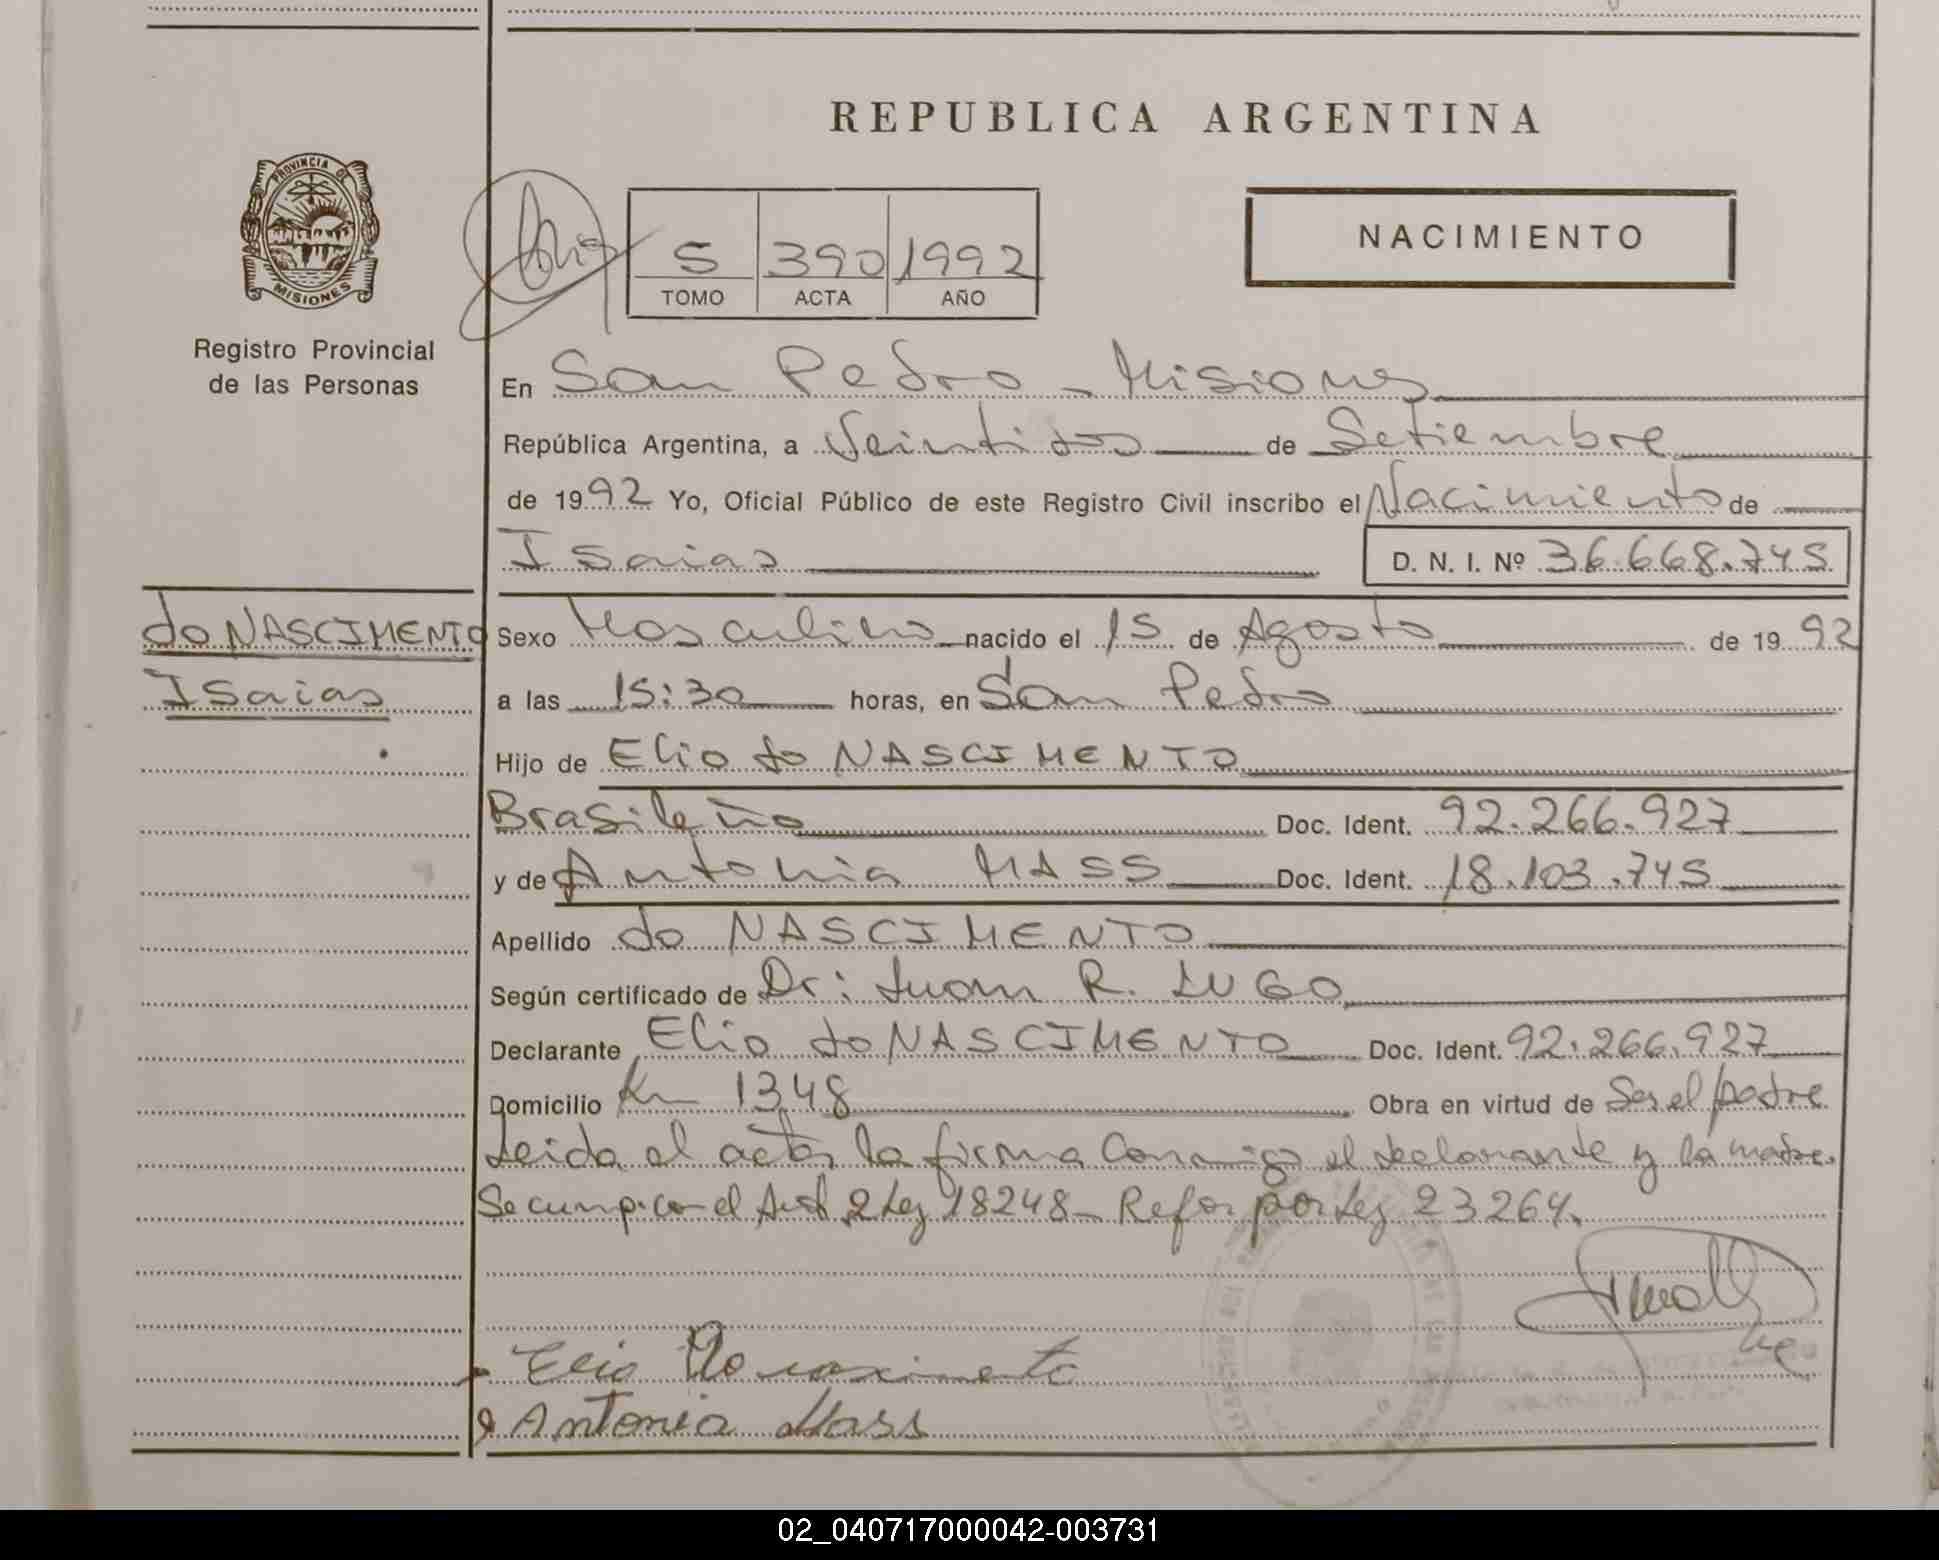 REPUBLICA ARGENTINA
PROVINCIA DE
MISIONES
Registro Provincial
de las Personas
5 390 1992
TOMO ACTA AÑO
NACIMIENTO
En San Pedro - Misiones
República Argentina, a Veintidos de Setiembre
de 1992 Yo, Oficial Público de este Registro Civil inscribo el Nacimiento de
Isaias D. N. I. Nº 36.668.745
do NASCIMENTO
Isaias
Sexo Masculino nacido el 15 de Agosto de 1992
a las 15:30 horas, en San Pedro
Hijo de Elio do NASCIMENTO
Brasileño Doc. Ident. 92.266.927
y de Antonia MASS Doc. Ident. 18.103.745
Apellido do NASCIMENTO
Según certificado de Dr: Juan R. LUGO
Declarante Elio do NASCIMENTO Doc. Ident. 92.266.927
Domicilio Km 1348 Obra en virtud de Ser el padre
Leida el acta, la firma Conmigo el declarante y la madre.
Se cump. con el Art. 2 Ley 18248 - Refor por Ley 23264.
Elio Do nascimento
Antonia Mass
02_040717000042-003731